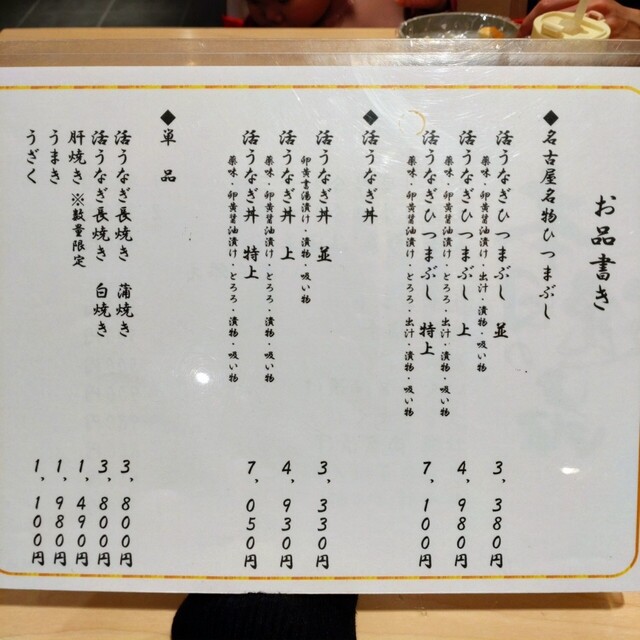 お品書き
◆名古屋名物ひつまぶし
活うなぎひつまぶし 並 3,380円
薬味・卵黄醤油漬け・出汁・漬物・吸い物
活うなぎひつまぶし 上 4,980円
薬味・卵黄醤油漬け・とろろ・出汁・漬物・吸い物
活うなぎひつまぶし 特上 7,100円
薬味・卵黄醤油漬け・とろろ・出汁・漬物・吸い物
◆活うなぎ丼
活うなぎ丼 並 3,330円
卵黄醤油漬け・漬物・吸い物
活うなぎ丼 上 4,930円
薬味・卵黄醤油漬け・とろろ・漬物・吸い物
活うなぎ丼 特上 7,050円
薬味・卵黄醤油漬け・とろろ・漬物・吸い物
◆単品
活うなぎ長焼き 蒲焼き 3,800円
活うなぎ長焼き 白焼き 3,800円
肝焼き ※数量限定 1,490円
うまき 1,980円
うざく 1,100円